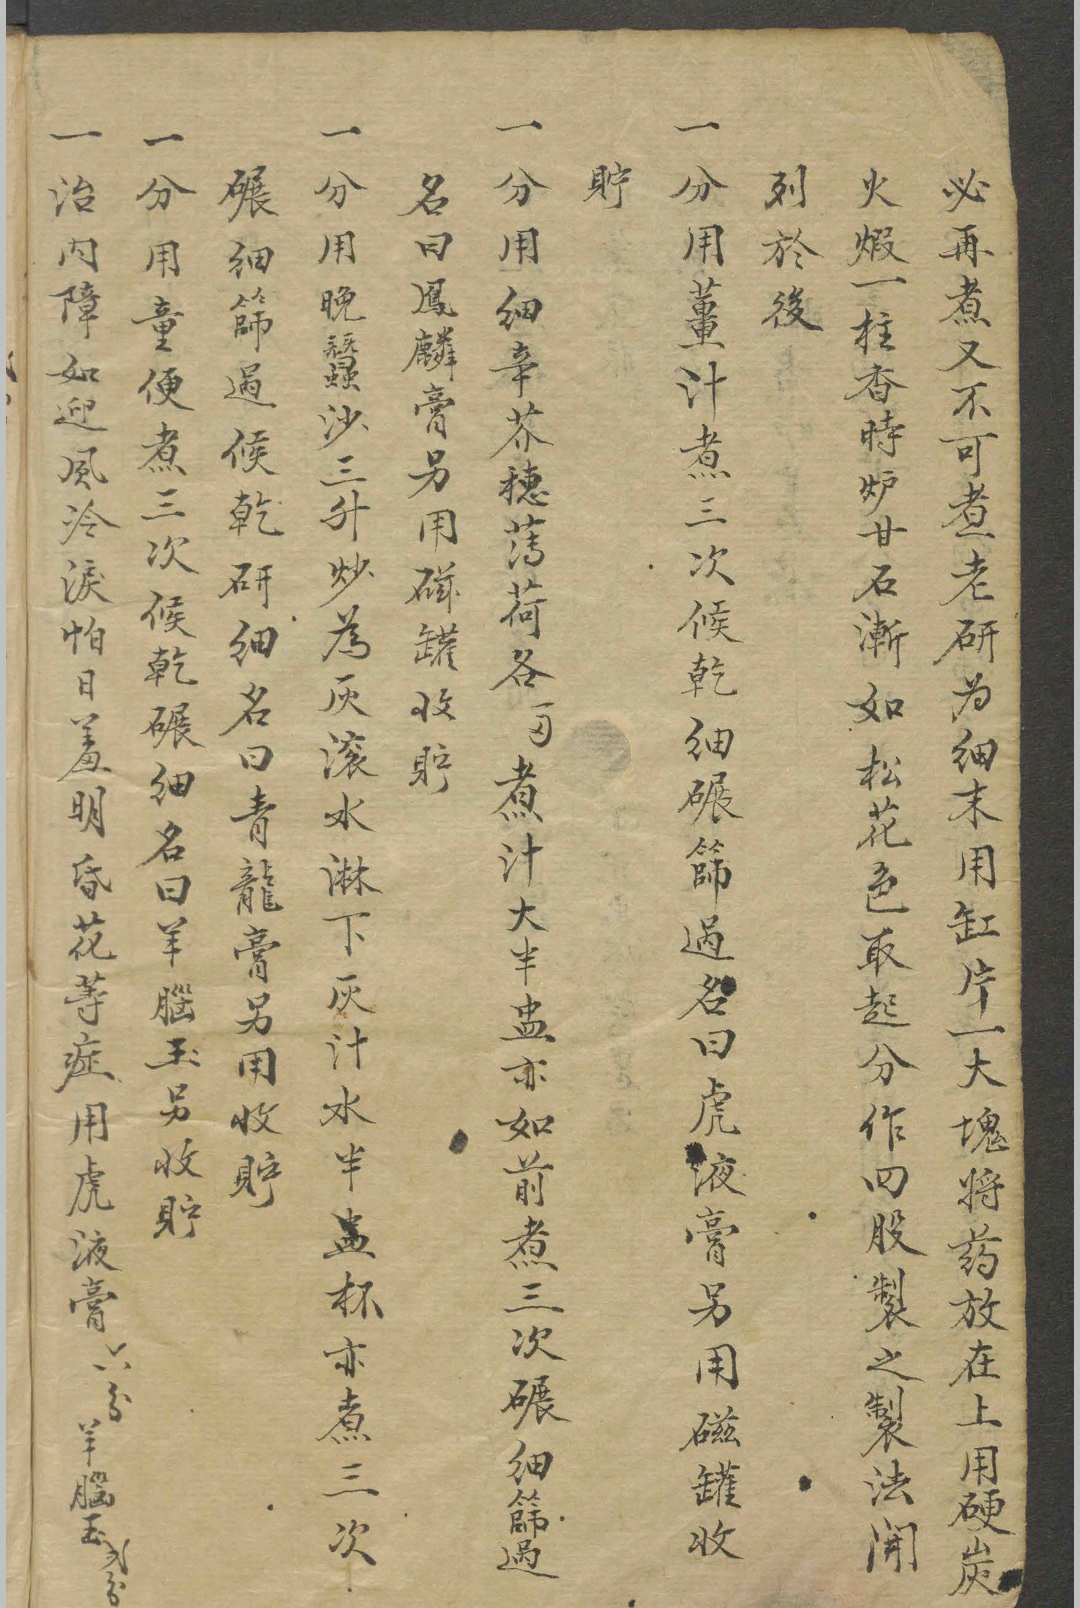 必再煮又不可煮老研为細末用缸片一大塊將药放在上用硬炭
火煅一柱香時炉甘石漸如松花色取起分作四股製之製法開
列於後
一分用薑汁煮三次候乾細碾篩過名曰虎液膏另用磁罐收
貯
一分用細辛芥穗薄荷各 煮汁大半盅亦如前煮三次碾細篩過
名曰鳳麟膏另用磁罐收貯
一分用晚蠶沙三升炒為灰滚水淋下灰汁水半盅杯亦煮三次
碾細篩過候乾研細名曰青龍膏另用收貯
一分用童便煮三次候乾碾細名曰羊腦玉另收貯
一治内障如迎風冷淚怕日羞明昏花等症用虎液膏六分羊腦玉弍分